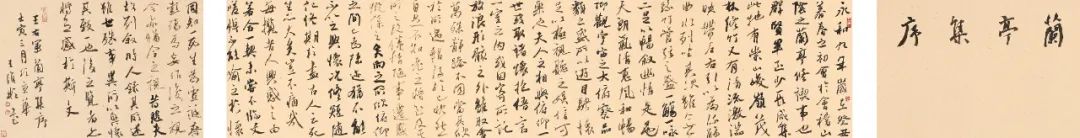 蘭亭集序
永和九年歲在癸丑
暮春之初會於會稽山
陰之蘭亭修禊事也
群賢畢至少長咸集
此地有崇山峻嶺茂
林修竹又有清流激湍
映帶左右引以為流觴
曲水列坐其次雖無
絲竹管弦之盛一觴一詠
亦足以暢敘幽情是日也
天朗氣清惠風和暢
仰觀宇宙之大俯察品
類之盛所以遊目騁懷
足以極視聽之娛信可
樂也夫人之相與俯仰一
世或取諸懷抱悟言
一室之內或因寄所託
放浪形骸之外雖取舍
萬殊靜躁不同當其欣
於所遇暫得於己快然
自足不知老之將至及其
所之既倦情隨事遷感慨
係之矣向之所欣俯仰
之間已為陳迹猶不能
不以之興懷況修短隨
化終期於盡古人云死
生亦大矣豈不痛哉
每覽昔人興感之由
若合一契未嘗不臨文
嗟悼不能喻之於懷
固知一死生為虛誕齊
彭殤為妄作後之視
今亦猶今之視昔悲夫
故列敘時人錄其所述
雖世殊事異所以興懷
其致一也後之覽者亦
將有感於斯文
王右軍蘭亭集序
壬寅三月於